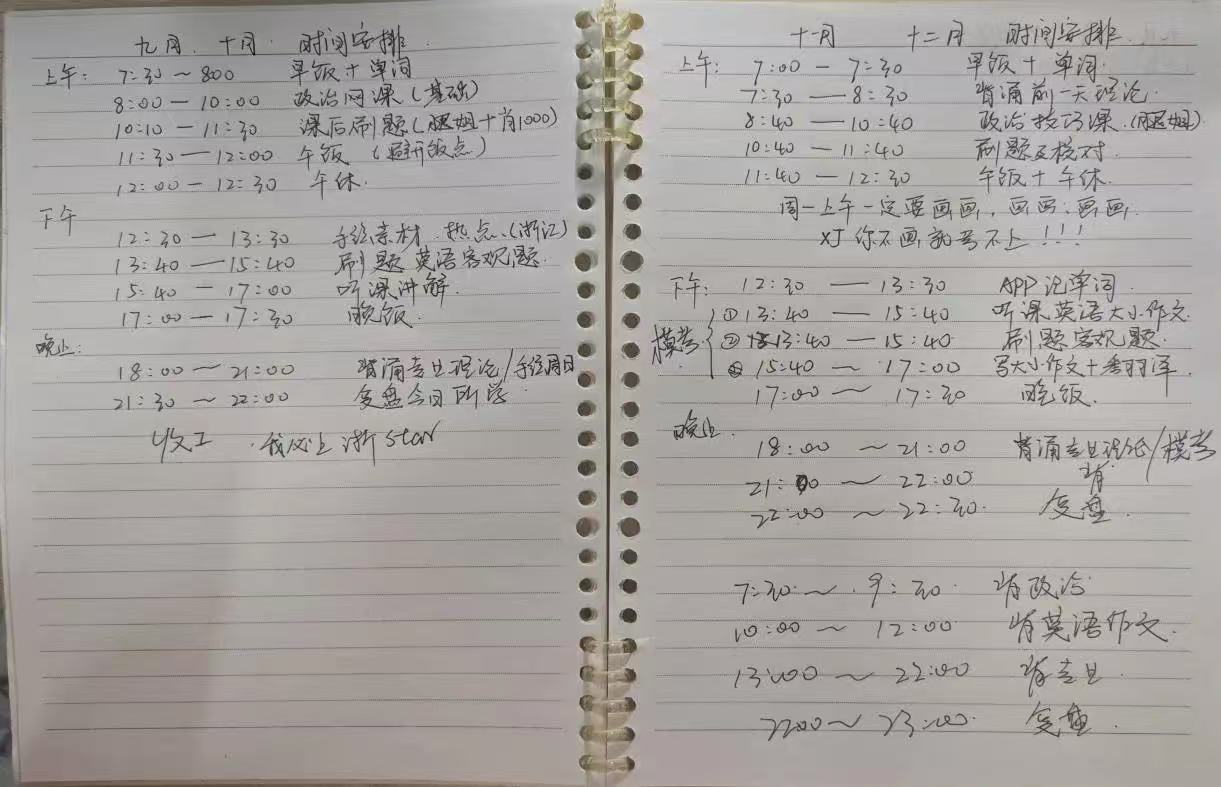 九月、十月 时间安排
上午: 7:30～800 早饭＋单词
8:00—10:00 政治网课(基础)
10:10—11:30 课后刷题(腿姐＋肖1000)
11:30—12:00 午饭 (避开饭点)
12:00—12:30 午休.
下午
12:30—13:30 手绘素材、热点、(浙江)
13:40—15:40 刷题 英语客观题.
15:40—17:00 听课讲解.
17:00—17:30 晚饭.
晚上:
18:00～21:00 背诵专业理论/手绘周日
21:30～22:00 复盘今日所学.
收工 . 我必上浙 star
十一月 十二月 时间安排.
上午: 7:00-7:30 早饭＋单词.
7:30—8:30 背诵前一天理论.
8:40—10:40 政治技巧课.(腿姐).
10:40—11:40 刷题及核对.
11:40—12:30 午饭＋午休.
周一上午一定要画画、画画、画画.
XJ 你不画就考不上!!!
下午: 12:30—13:30 APP记单词.
模考 ①13:40—15:40 听课英语大小作文.
②13:40—15:40 刷题客观题.
15:40～17:00 写大小作文＋
17:00～17:30 晚饭.
晚上.
18:00～21:00 背诵专业理论/模考
21:00～22:00 背
22:00～22:30. 复盘.
7:30～9:30. 背政治
10:00～12:00 背英语作文.
13:00～22:00 背专业.
2200～23:00. 复盘.